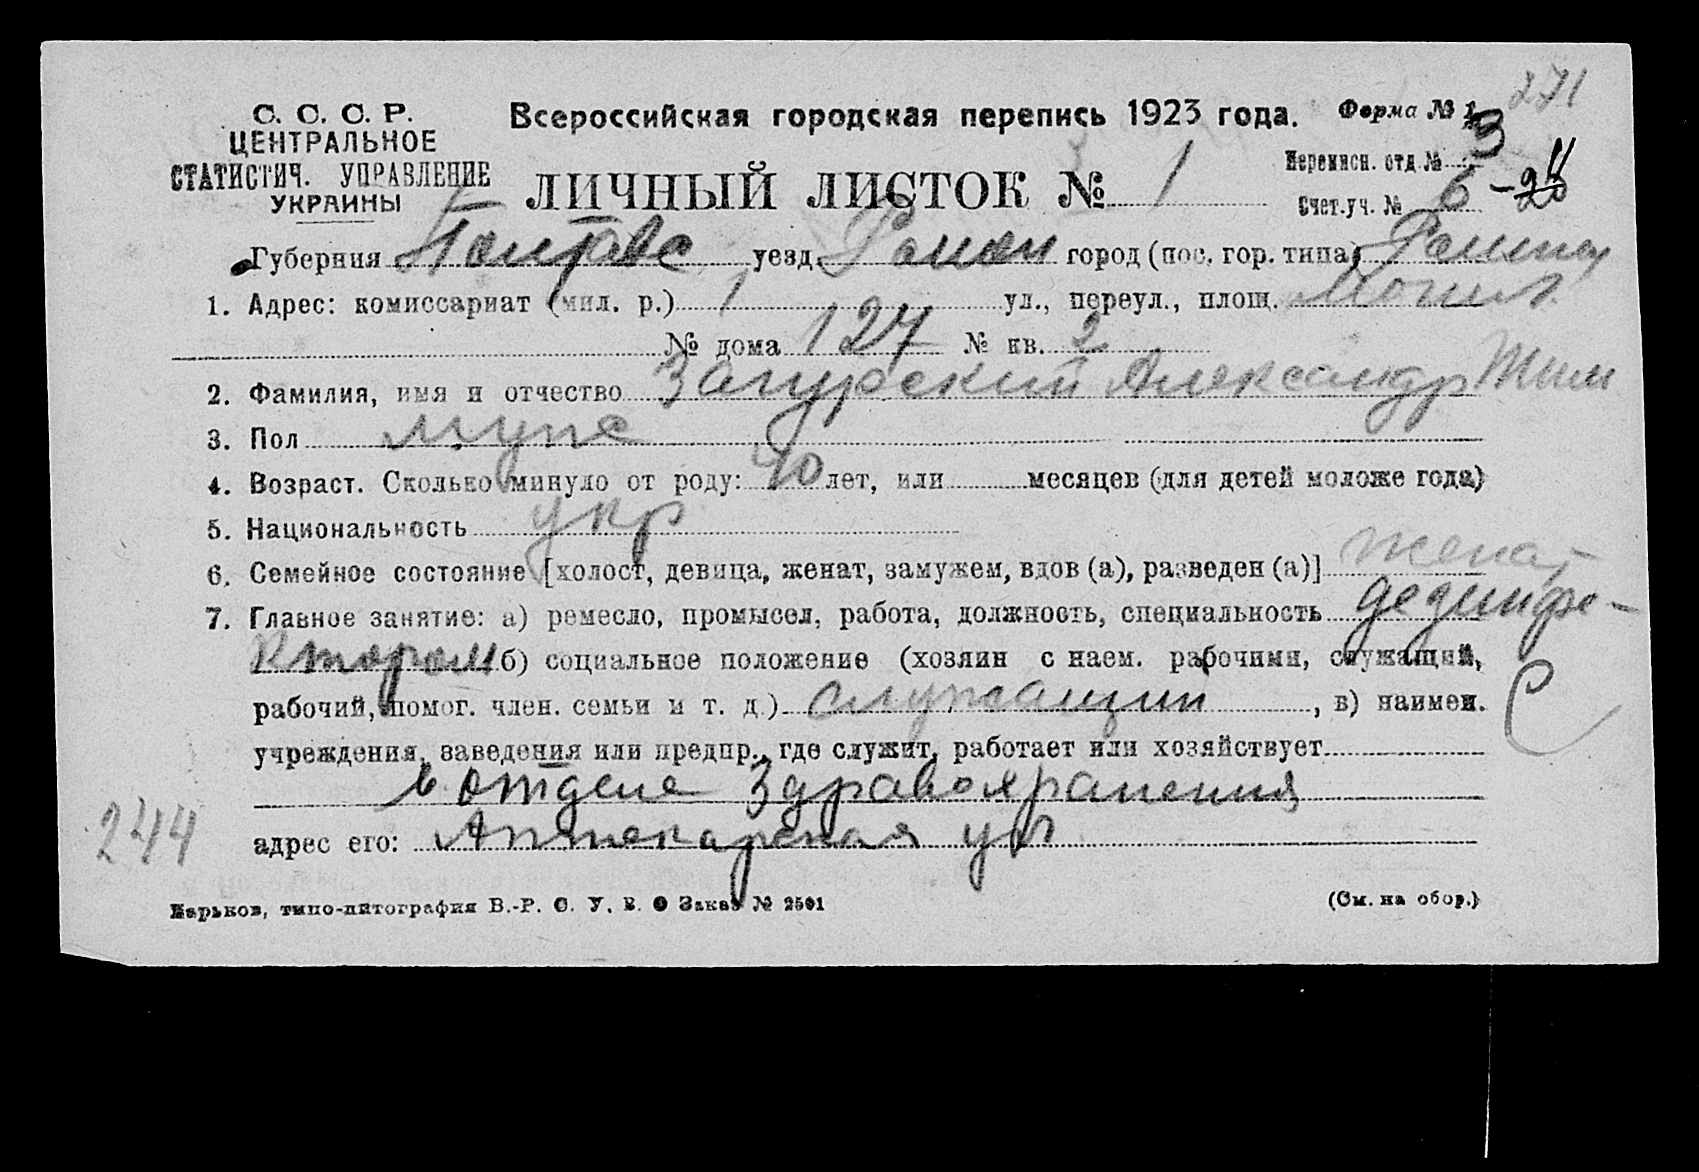 271
С. С. С. Р.
ЦЕНТРАЛЬНОЕ
СТАТИСТИЧ. УПРАВЛЕНИЕ
УКРАИНЫ
Всероссийская городская перепись 1923 года.
Форма № 1
ЛИЧНЫЙ ЛИСТОК № 1
Переписн. отд № 3
Счет.уч. № 6 –
Губерния Полтава уезд. Ромен город (пос. гор. типа) Ромны
1. Адрес: комиссариат (мил. р.) 1 ул., переул., площ. Могил.
№ дома 127 № кв. 2
2. Фамилия, имя и отчество Загурский Александр Тим
3. Пол мужс
4. Возраст. Сколько минуло от роду: 40 лет, или месяцев (для детей моложе года)
5. Национальность укр
6. Семейное состояние [холост, девица, женат, замужем, вдов (а), разведен (а)] женат
7. Главное занятие: а) ремесло, промысел, работа, должность, специальность дезинфе-
ктором б) социальное положение (хозяин с наем. рабочими, служащий,
рабочий, помог. член. семьи и т. д.) служащий, в) наимен. С
учреждения, заведения или предпр., где служит, работает или хозяйствует
в отделе Здравохранения
244
адрес его: Аптекарская ул
Харьков, типо-литография В.-Р. С. У. В. О Заказ № 2591
(См. на обор.)